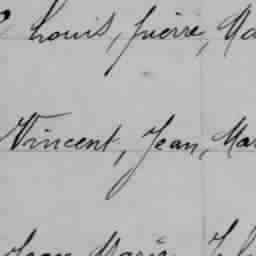 Louis, pierre, Ma
Vincent, Jean, Mar
Jean Marie